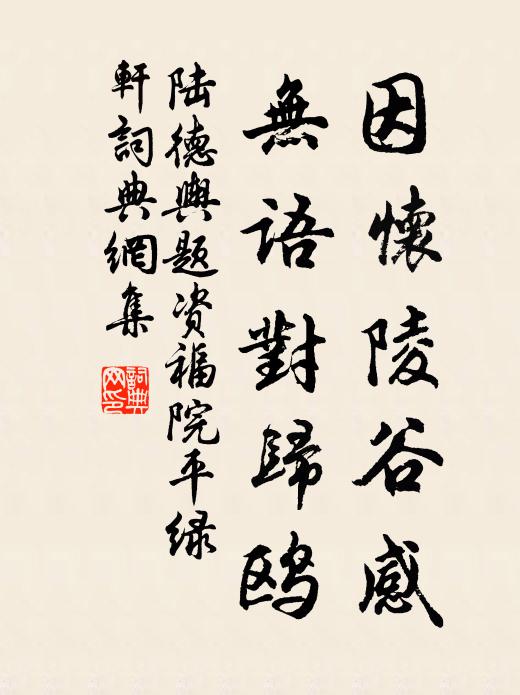 因懷陵谷感
無語對歸鸥
陆德輿题资福院平绿
軒詞典網集
詞典网印